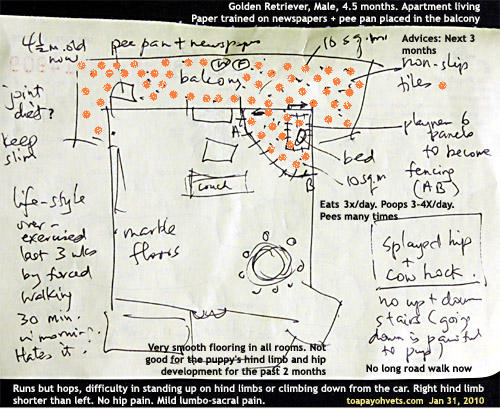 Golden Retriever, Male, 4.5 months. Apartment living
Paper trained on newspapers + pee pan placed in the balcony
4½ m. old
now
pee pan + newspaper
10 sq. m
Advices: Next 3
months
balcony
W F
non-slip
tiles
joint
diet?
keep
slim
A
playpen 6
panels
to become
fencing
(AB)
bed
10 sqm
B
couch
Eats 3x/day. Poops 3-4X/day.
Pees many times
life-style
over-
exercised
last 3 wks
by forced
walking
30 min.
in morning.
Hates it.
marble
floors
splayed hip
+
cow hock.
no up + down
stairs (going
down is painful
to pup)
Very smooth flooring in all rooms. Not
good for the puppy's hind limb and hip
development for the past 2 months
No long road walk now
Runs but hops, difficulty in standing up on hind limbs or climbing down from the car. Right hind limb
shorter than left. No hip pain. Mild lumbo-sacral pain.
toapayohvets.com Jan 31, 2010